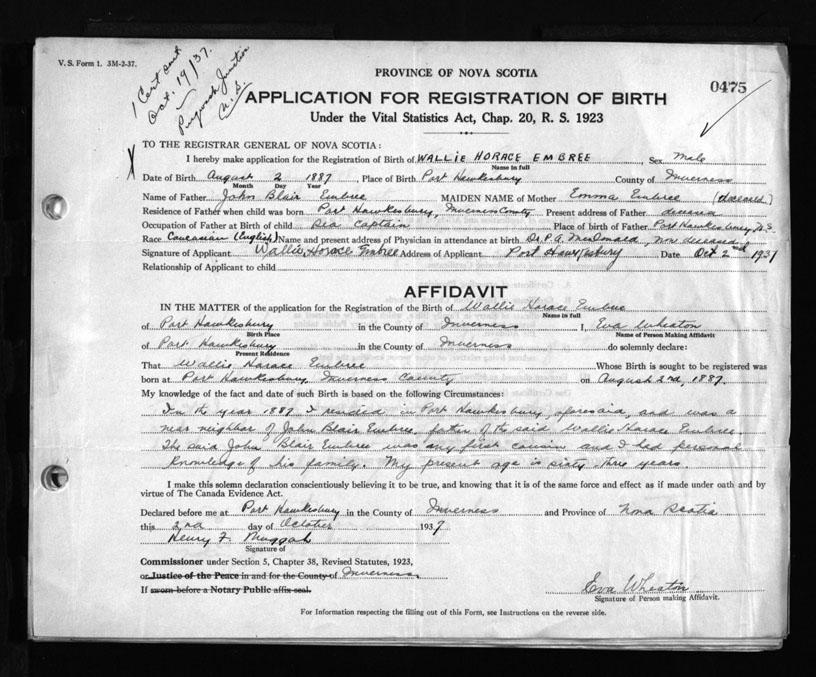 V. S. Form 1. 3M-2-37.
1 Cert sent
Oct. 19/37.
Pugwash Junction
N. S.
PROVINCE OF NOVA SCOTIA
0475
APPLICATION FOR REGISTRATION OF BIRTH
Under the Vital Statistics Act, Chap. 20, R. S. 1923
TO THE REGISTRAR GENERAL OF NOVA SCOTIA:
X
I hereby make application for the Registration of Birth of WALLIE HORACE EMBREE Sex Male
Name in full
Date of Birth August 2 1887 Place of Birth Port Hawkesbury County of Inverness
Month Day Year
Name of Father John Blair Embree MAIDEN NAME of Mother Emma Embree (deceased)
Residence of Father when child was born Port Hawkesbury, Inverness County Present address of Father deceased
Occupation of Father at Birth of child Sea Captain Place of birth of Father Port Hawkesbury, N.S.
Race Caucasian (English) Name and present address of Physician in attendance at birth Dr. P. A. MacDonald now deceased
Signature of Applicant Wallie Horace Embree Address of Applicant Port Hawkesbury Date Oct 2nd 1937
Relationship of Applicant to child
AFFIDAVIT
IN THE MATTER of the application for the Registration of the Birth of Wallie Horace Embree
Name in full
of Port Hawkesbury in the County of Inverness I, Eva Wheaton
Birth Place Name of Person Making Affidavit
of Port Hawkesbury in the County of Inverness do solemnly declare:
Present Residence
That Wallie Horace Embree Whose Birth is sought to be registered was
born at Port Hawkesbury, Inverness County on August 2nd, 1887.
My knowledge of the fact and date of such Birth is based on the following Circumstances:
In the year 1887 I resided in Port Hawkesbury, aforesaid, and was a
near neighbor of John Blair Embree, father of the said Wallie Horace Embree.
The said John Blair Embree was my first cousin and I had personal
knowledge of his family. My present age is sixty three years.
I make this solemn declaration conscientiously believing it to be true, and knowing that it is of the same force and effect as if made under oath and by
virtue of The Canada Evidence Act.
Declared before me at Port Hawkesbury in the County of Inverness and Province of Nova Scotia
this 2nd day of October 1937
Henry F. Muggah
Signature of
Commissioner under Section 5, Chapter 38, Revised Statutes, 1923,
or Justice of the Peace in and for the County of Inverness.
If sworn before a Notary Public affix seal.
Eva Wheaton
Signature of Person making Affidavit.
For Information respecting the filling out of this Form, see Instructions on the reverse side.